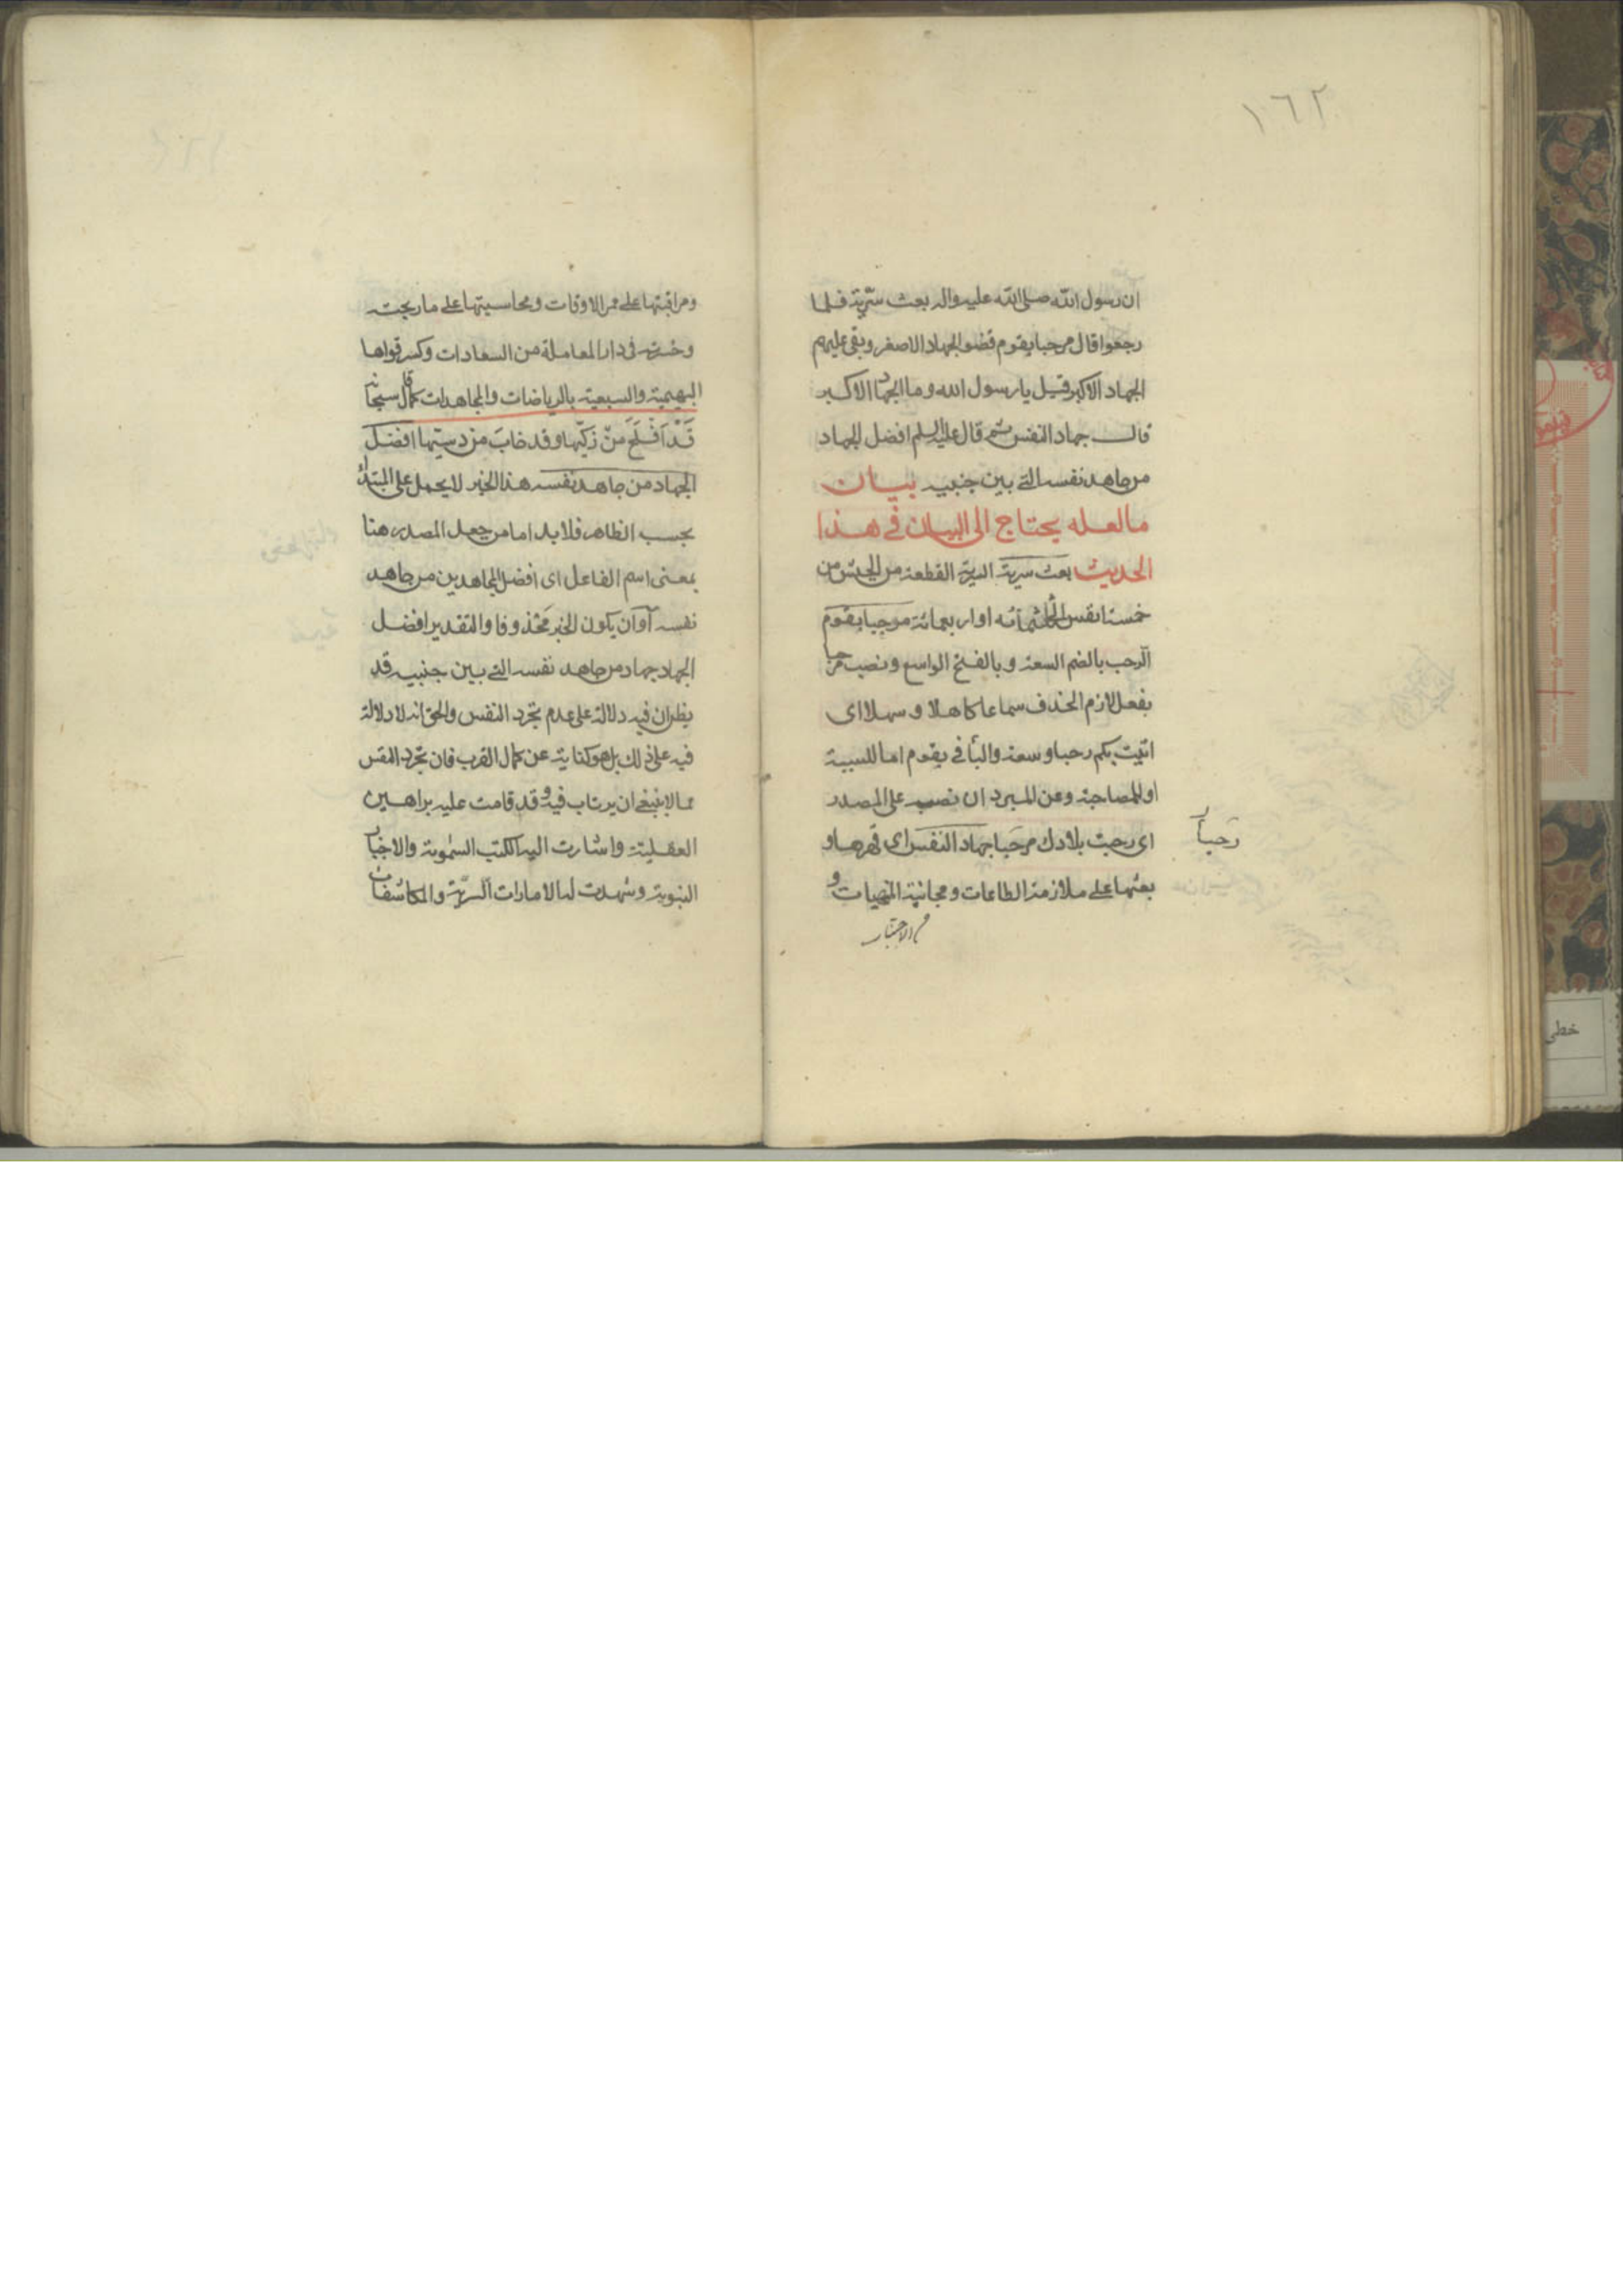 ١٦٢
ان رسول الله صلى الله عليه واله بعث سرية فلما
رجعوا قال مرحبا بقوم قضوا الجهاد الاصغر وبقى عليهم
الجهاد الاكبر قيل يا رسول الله وما الجهاد الاكبر
قال جهاد النفس ثم قال عليه السلم افضل الجهاد
من جاهد نفسه التى بين جنبيه بيان
ما لعله يحتاج الى البيان فى هذا
الحديث بعث سرية السرية القطعة من الجيش من
خمسة انفس الى ثلثمائه او اربعمائة مرحبا بقوم
الرحب بالضم السعة و بالفتح الواسع و نصب مرحبا
بفعل لازم الحذف سماعا كاهلا و سهلا اى
اتيت بكم رحبا و سعة والبا فى بقوم اما للسببية
او للمصاحبة وعن المبرد ان نصبه على المصدر
اى رحبت بلادك مرحبا جهاد النفس اى قهرها و
رحبا
بعثها على ملازمة الطاعات و مجانبة المنهيات و
ومراقبتها على ممر الاوقات و محاسبتها على ما ربحت
وخسرته فى دار المعاملة من السعادات وكسر قواها
البهيمية والسبعية بالرياضات والمجاهدات كما قال سبحانه
قَدْ اَفْلَحَ مَنْ زَكّيها وقد خابَ من دسيّها افضل
الجهاد من جاهد نفسه هذا الخبر لا يحمل على المبتدا
بحسب الظاهر فلابد اما من جعل المصدر هنا
بمعنى اسم الفاعل اى افضل المجاهدين من جاهد
نفسه او ان يكون الخبر محذوفا والتقدير افضل
الجهاد جهاد من جاهد نفسه التى بين جنبيه قد
يظن ان فيه دلالة على عدم تجرد النفس والحق انه لا دلالة
فيه على ذلك بل هو كناية عن كمال القرب فان تجرد النفس
مما لا ينبغى ان يرتاب فيه و قد قامت عليه براهين
العقلية واشارت اليه الكتب السموية والاخبار
النبوية وشهدت له الامارات السرّية والمكاشفات
خطى